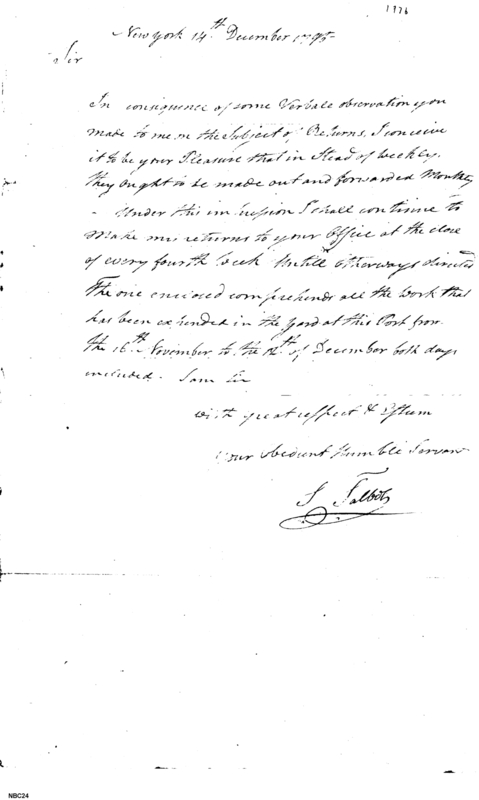 1776
New york 14th December 1795
Sir
In consequence of some Verbale observation you
made to me on the Subject of Returns, I conceive
it to be your Pleasure that in Stead of weekly,
they ought to be made out and forwarded Monthly
- Under this impression I shall continue to
Make my returns to your Office at the close
of every fourth week Untill otherways directed
The one enclosed comprehends all the work that
has been expended in the yard at this Port from
the 16th November to the 12th of December both days
included. I am Sir
with great respect & Esteem
Your obedient Humble Servant
S Talbot
NBC24